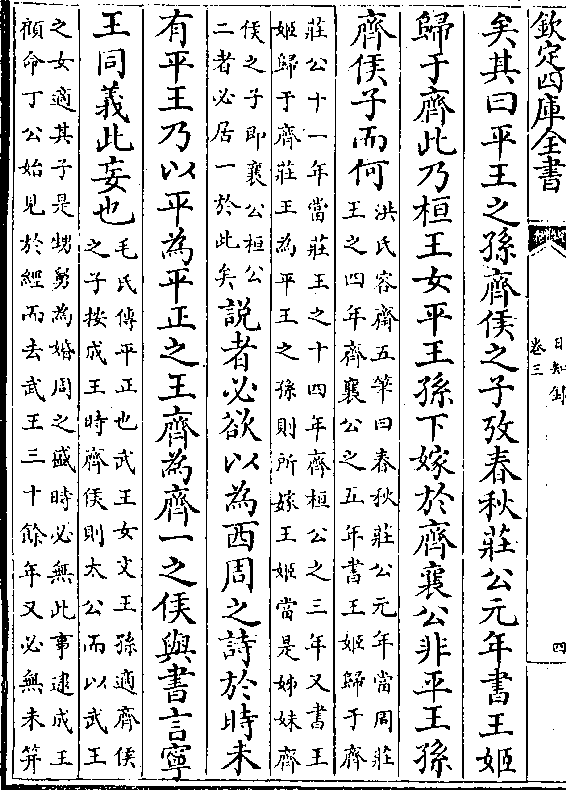 欽定四庫全書
日知錄
卷三
四
矣其曰平王之孫齊侯之子攷春秋莊公元年書王姬
歸于齊此乃桓王女平王孫下嫁於齊襄公非平王孫
齊侯子而何
洪氏容齋五筆曰春秋莊公元年當周莊
王之四年齊襄公之五年書王姬歸于齊
莊公十一年當莊王之十四年齊桓公之三年又書王
姬歸于齊莊王為平王之孫則所嫁王姬當是姊妹齊
侯之子即襄公桓公
二者必居一於此矣
說者必欲以為西周之詩於時未
有平王乃以平為平正之王齊為齊一之侯與書言寧
王同義此妄也
毛氏傳平正也武王女文王孫適齊侯
之子按成王時齊侯則太公而以武王
之女適其子是甥舅為婚周之盛時必無此事逮成王
顧命丁公始見於經而去武王三十餘年又必無未笄